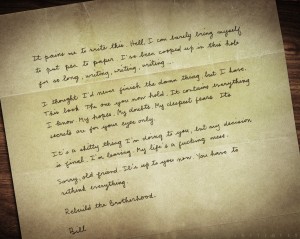 It pains me to write this. Hell, I can barely bring myself
to put pen to paper. I've been cooped up in this hole
for so long, writing, writing, writing...
I thought I'd never finish the damn thing, but I have.
This book. The one you now hold. It contains everything
I know. My hopes. My doubts. My deepest fears. Its
secrets are for your eyes only.
It's a shitty thing I'm doing to you, but my decision
is final. I'm leaving. My life's a fucking mess.
Sorry, old friend. It's up to you now. You have to
rethink everything.
Rebuild the Brotherhood.
Bill